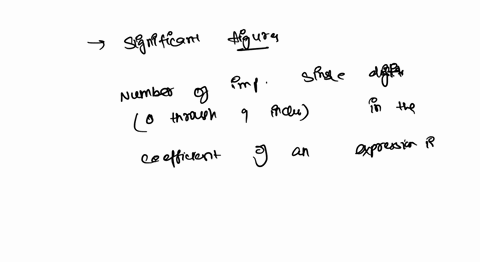 → Significant figures
Number of imp. single digits
(0 through 9 inclu) in the
coefficient of an expression R